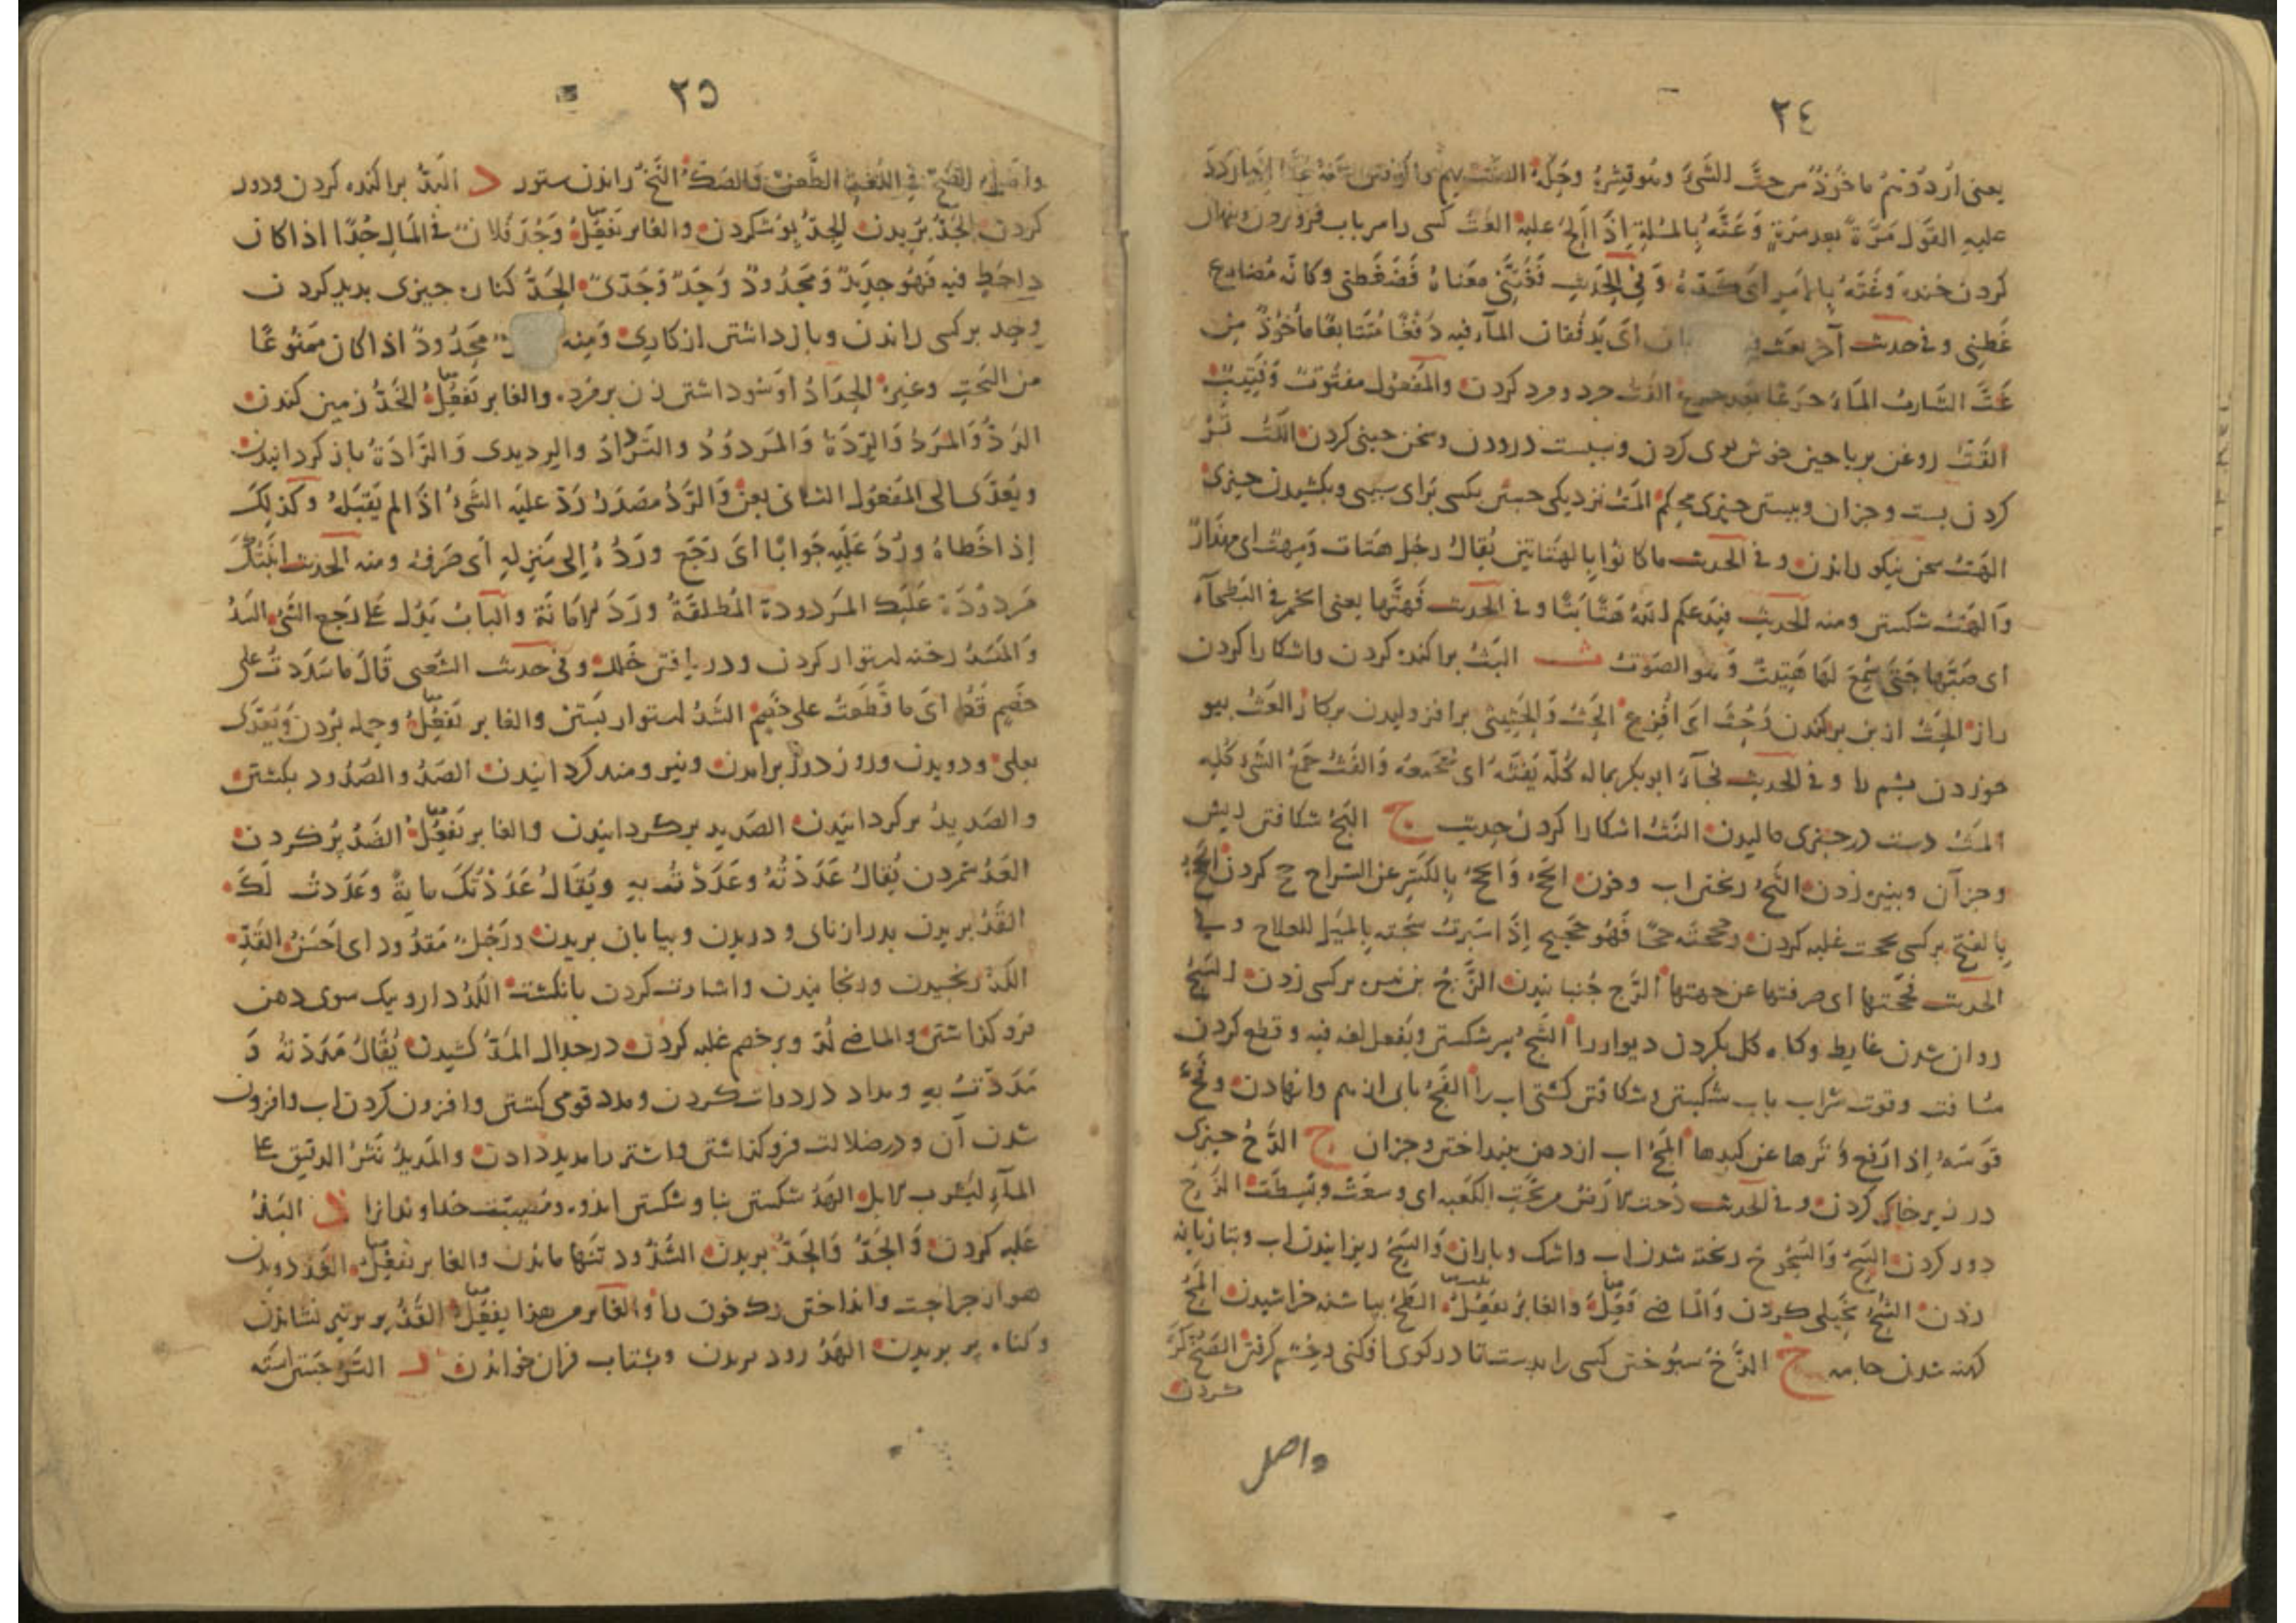 ٢٤
يعنى اُردُدْهُم ماخُوذٌ من حتّ الشَّئِ وهُو قِشره وحَكّه
عليهِ القَول مَرّةً بعد مَرّةٍ وَعَتّهُ بِالمسْلةِ اِذَا اَلحّ عليهِ الغَتّ كسى را سر باب فرو بردن و نهان
كردن خنده وَغَتّهُ بِالامرِ اى كَدّهُ وَفِى الحَدِيثِ فَغَتَّنِى مَعناهُ فَضَغَطَنى وكانّه مُضارِع
غَطنِى وفى حديث آخر اَى يَدفُقان المآء فيه دَفْقًا مُتَتابعًا مأخُوذٌ من
غَتَّ الشّاربُ المَاءَ جَرعًا بَعد جرعٍ الفَتّ خرد و مرد كردن والمَفعُول مفتُوتٌ وَفَتِيتٌ
القَتّ روغن برياحين خوش بوى كردن و سبست درودن و سخن چينى كردن اللَتّ تَر
كردن پست و جزان و ببستن چيزى محكم المَتّ نزديكى جستن بكسى براى سببى و بكشيدن چيزى
الهَتّ سخن نيكو راندن وفى الحديث ماكانُوا بِالهَتّاتين يُقالُ رجُل هَتّات وَمِهَتّ اى مهذارٌ
وَالهَتّ شكستن ومنه الحَدِيثِ فيَدعكم لله هَتًّا بَتًّا وفى الحديث فَهَتَّها يعنى الخمر فى البَطحآء
اى صَبّها حَتّى سُمِعَ لها هَتِيتٌ وَهو الصَوتُ ث البَثّ پراكنده كردن و اشكارا كردن
راز الجَثّ از بن بركندن وَجُثَّ اَى اُفْزِعَ الحَثّ وَالحِثِيثى برافزوليدن بركار العَثّ بيو
خوردن پشم را وفى الحديث فجآءَ ابوبكر بماله كُلّه يَقثّه اى يَجمعه وَالقَثّ جَمعُ الشَّئِ كُلِّه
المَثّ دست در چيزى ماليدن النَثّ اشكارا كردن حديث ج البَجّ شكافتن ريش
و جز آن و بنيزه زدن الثَجّ ريختن اب و خون الحَجّ وَالحِجّ بِالكَسرِ عن السّراج حج كردن الحَجّ
بِالفتح بر كسى بحجت غلبه كردن وحَجَجتَه حجًّا فَهُو حَجِيجٌ اِذَا سَبَرتَ شجّته بِالمَيلِ للعلاج وفى
الحديث فحَجّتها اى صرفتها عن جهتها الرَجّ جُنبانيدن الزَجّ بن نيزه بر كسى زدن السَجّ
روان شدن غايط و كاه كل كردن ديوار را الشَجّ سر شكستن ويَفعل لغه فيه و قطع كردن
مسافت و قوت شراب باب شكستن و شكافتن كشتى اب را الفَجّ پاى از هم وانهادن وَفَجَّ
قَوسَهُ اِذا رَفع وَتَرها عن كبدها المَجّ اب از دهن بينداختن و جزان ح الدَحّ چيزى
در زير خاك كردن وفى الحديث دُحّت الارض من تَحتِ الكَعبه اى وسعَت وبُسِطَت الزَحّ
دور كردن السَحّ وَالسُحُوح ريخته شدن اب و اشك و باران وَالسَحّ ريزانيدن اب و بتازيانه
زدن الشُحّ بَخيلى كردن وَالماضى فَعِلَ والغابرُ يفعَل القَحّ بپاشنه خراشيدن المَحّ
كهنه شدن جامه خ الدَخّ سبُوختن كسى را بدست تا در كوى افكنى و خشم كرفتن الصَخّ كَر
كردن
واصل
٢٥
واصله الضَخّ فى اللُغه الطَّعن وَالصَكّ النَخّ راندن ستور د البَدّ پراكنده كردن و دور
كردن الجَدّ بُريدن الجِدّ بِكُوشكردن والغابر يَفعُلُ وَجُدّ فُلانٌ فى المَالِ جُدًّا اذا كان
ذاحَظٍ فيه فَهُو جدِيدٌ وَمَجدُودٌ وَجَدٌّ وَجَدّىٌّ الحَدّ كنارهٔ چيزى پديد كردن
و حد بر كسى راندن و باز داشتن از كارى وَمِنه مَحدُودٌ اذا كان مَمنُوعًا
من البَختِ وغيرِهِ الحِدَاد سود داشتن زن بر مرد والغابر يَفعِلُ الخَدّ زمين كندن
الرَدّ وَالمَرَدّ وَالرِدّة وَالمَردُود والتَرداد والرِديدى وَالرّادّة باز كردانيدن
ويُعدّى الى المَفعُول الثانى بعن وَالرَدّ مصدر رَدّ عليه الشَئ اذَا لم يَقبَله وكذلك
اِذا خَطّاهُ ورَدَّ عَليهِ جَوابًا اَى رَجَع ورَدّهُ اِلى مَنزلهِ اَى صَرفهُ ومنه الحديث ابنتُك
مَردُودَة عَلَيك المَردودة المُطلّقة ورَدّ الامانة والبابُ يدُل على رَجع الشَئ السَدّ
وَالمَسَدّ رخنه استوار كردن و دريافتن خلل وفى حديث الشَعبى قَالَ ما سَدَدتُ على
خَصمٍ قَطّ اى ما قَطَعتُ على خَصمٍ الشَدّ استوار بَستن والغابر يَفعُلُ و حمله بُردن وَيعدّى
بعلى و دويدن و روز دراز برامدن و نيرومند كردانيدن الصَدّ والصُدُود بكشتن
والصَدِيدُ بر كردانيدن الصَديد بركردانيدن والغابر يَفعُلُ الضَدّ پُر كردن
العَدّ شمردن يُقالُ عَدَدتُهُ وعَدَدتُ بهِ ويُقَالُ عَدَدتُكَ مايةً وعَدَدتُ لَكَ
القَدّ بريدن بدرازناى و دريدن و بيابان بريدن ورَجُلٌ مَقدُود اى حَسَنُ القَدّ
الكَدّ رنجيدن و رنجانيدن و اشارت كردن بانكشت اللَدّ دارو بيك سوى دهن
فرو كذاشتن والماضى لُدّ و بر خصم غلبه كردن در جدال المَدّ كشيدن يُقَالُ مَدَدتهُ وَ
مَدَدتُ بهِ و مداد در دوات كردن و مدد قومى كشتن و افزون كردن اب و افزون
شدن آن و در ضلالت فرو كذاشتن و اشتر را مديد دادن والمَديدُ نَثرُ الدقيق على
المآءِ ليشرب الابل الهَدّ شكستن بنا و شكستن اندوه و مُصيبَت خداوندانرا ذ البَذّ
غلبه كردن وَالجَذّ وَالحَذّ بريدن الشُذُوذ تَنها ماندن والغابر يفعِلُ الغَذّ دويدن
هموار جراحت و انداختن رك خون را والغابر من هذا يفعِلُ القَذّ پر بر تير نشاندن
و كناره پر بريدن الهَذّ زود بريدن و بشتاب قران خواندن ر